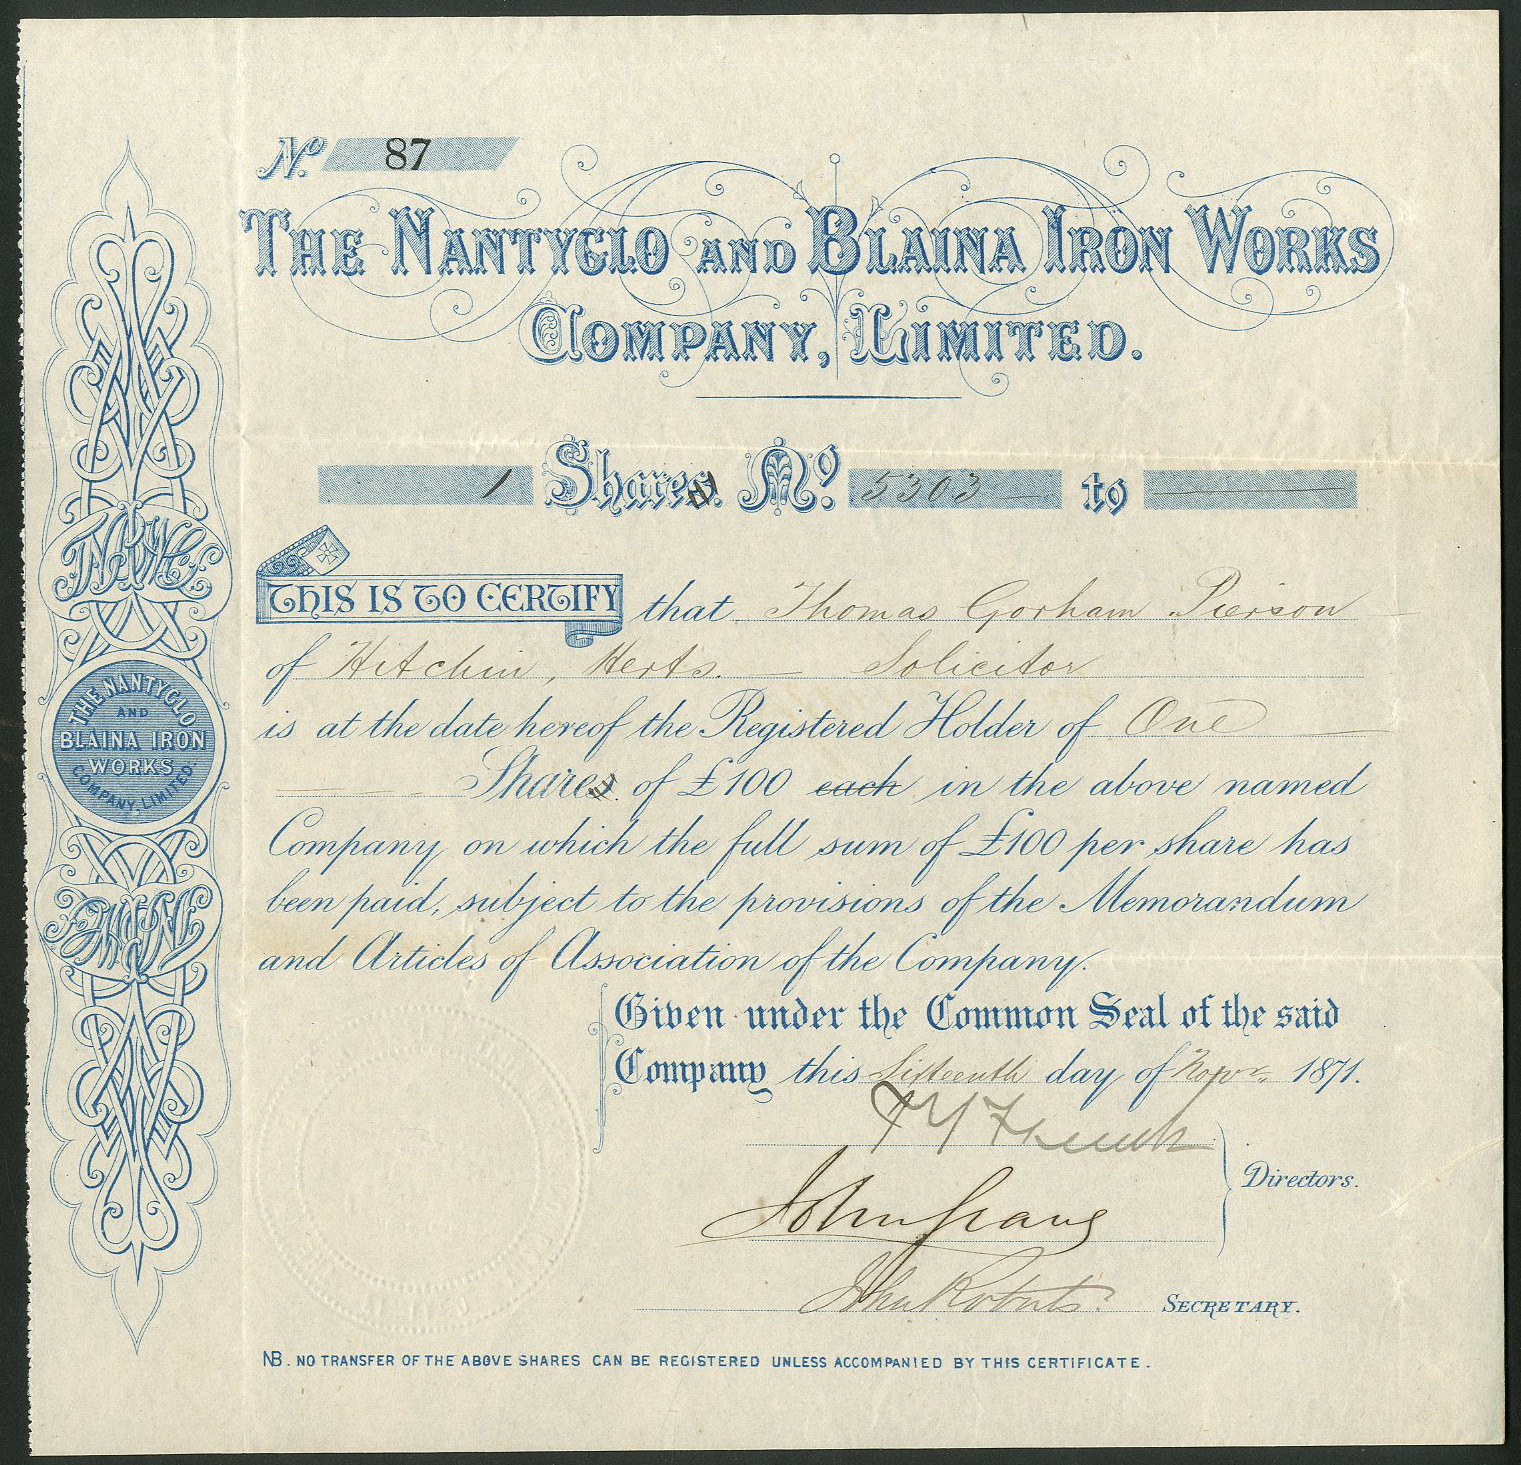 No. 87
THE NANTYGLO AND BLAINA IRON WORKS
COMPANY, LIMITED.
1 Shares. No. 5303 to
THIS IS TO CERTIFY that Thomas Gorham Pierson
of Hitchin, Herts. — Solicitor
is at the date hereof the Registered Holder of One
Shares of £100 each in the above named
Company on which the full sum of £100 per share has
been paid, subject to the provisions of the Memorandum
and Articles of Association of the Company.
Given under the Common Seal of the said
Company this Sixteenth day of Novr. 1871.
Directors.
John Roberts SECRETARY.
NB. NO TRANSFER OF THE ABOVE SHARES CAN BE REGISTERED UNLESS ACCOMPANIED BY THIS CERTIFICATE.
THE NANTYGLO
AND
BLAINA IRON
WORKS
COMPANY, LIMITED.